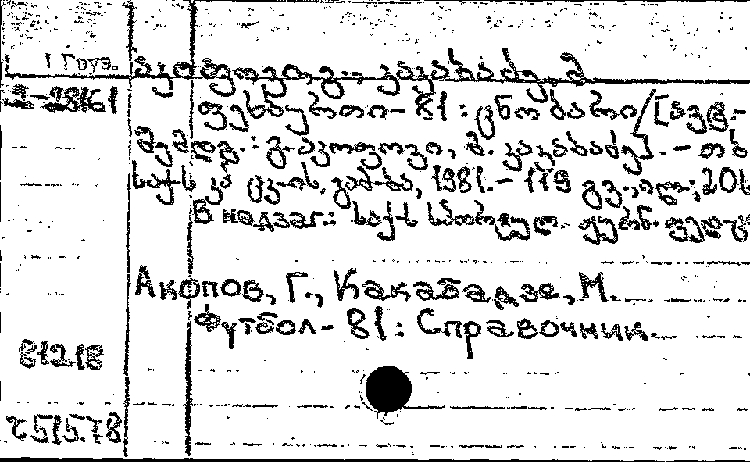 1 Груз. აკოფოვი, გ., კაკაბაძე, მ.
2-28161 ფეხბურთი - 81 : ცნობარი / [ავტ.-
შემდგ.: გ. აკოფოვი, მ. კაკაბაძე]. - თბ
საქ-ს კპ ცკ-ის გამ-ბა, 1981. - 119 გვ., ილ.; 20ს
В надзаг.: საქ-ს სპორტულ. ჟურნ. ფედ
Акопов, Г., Какабадзе, М.
Футбол - 81 : Справочник.
81218
515.78